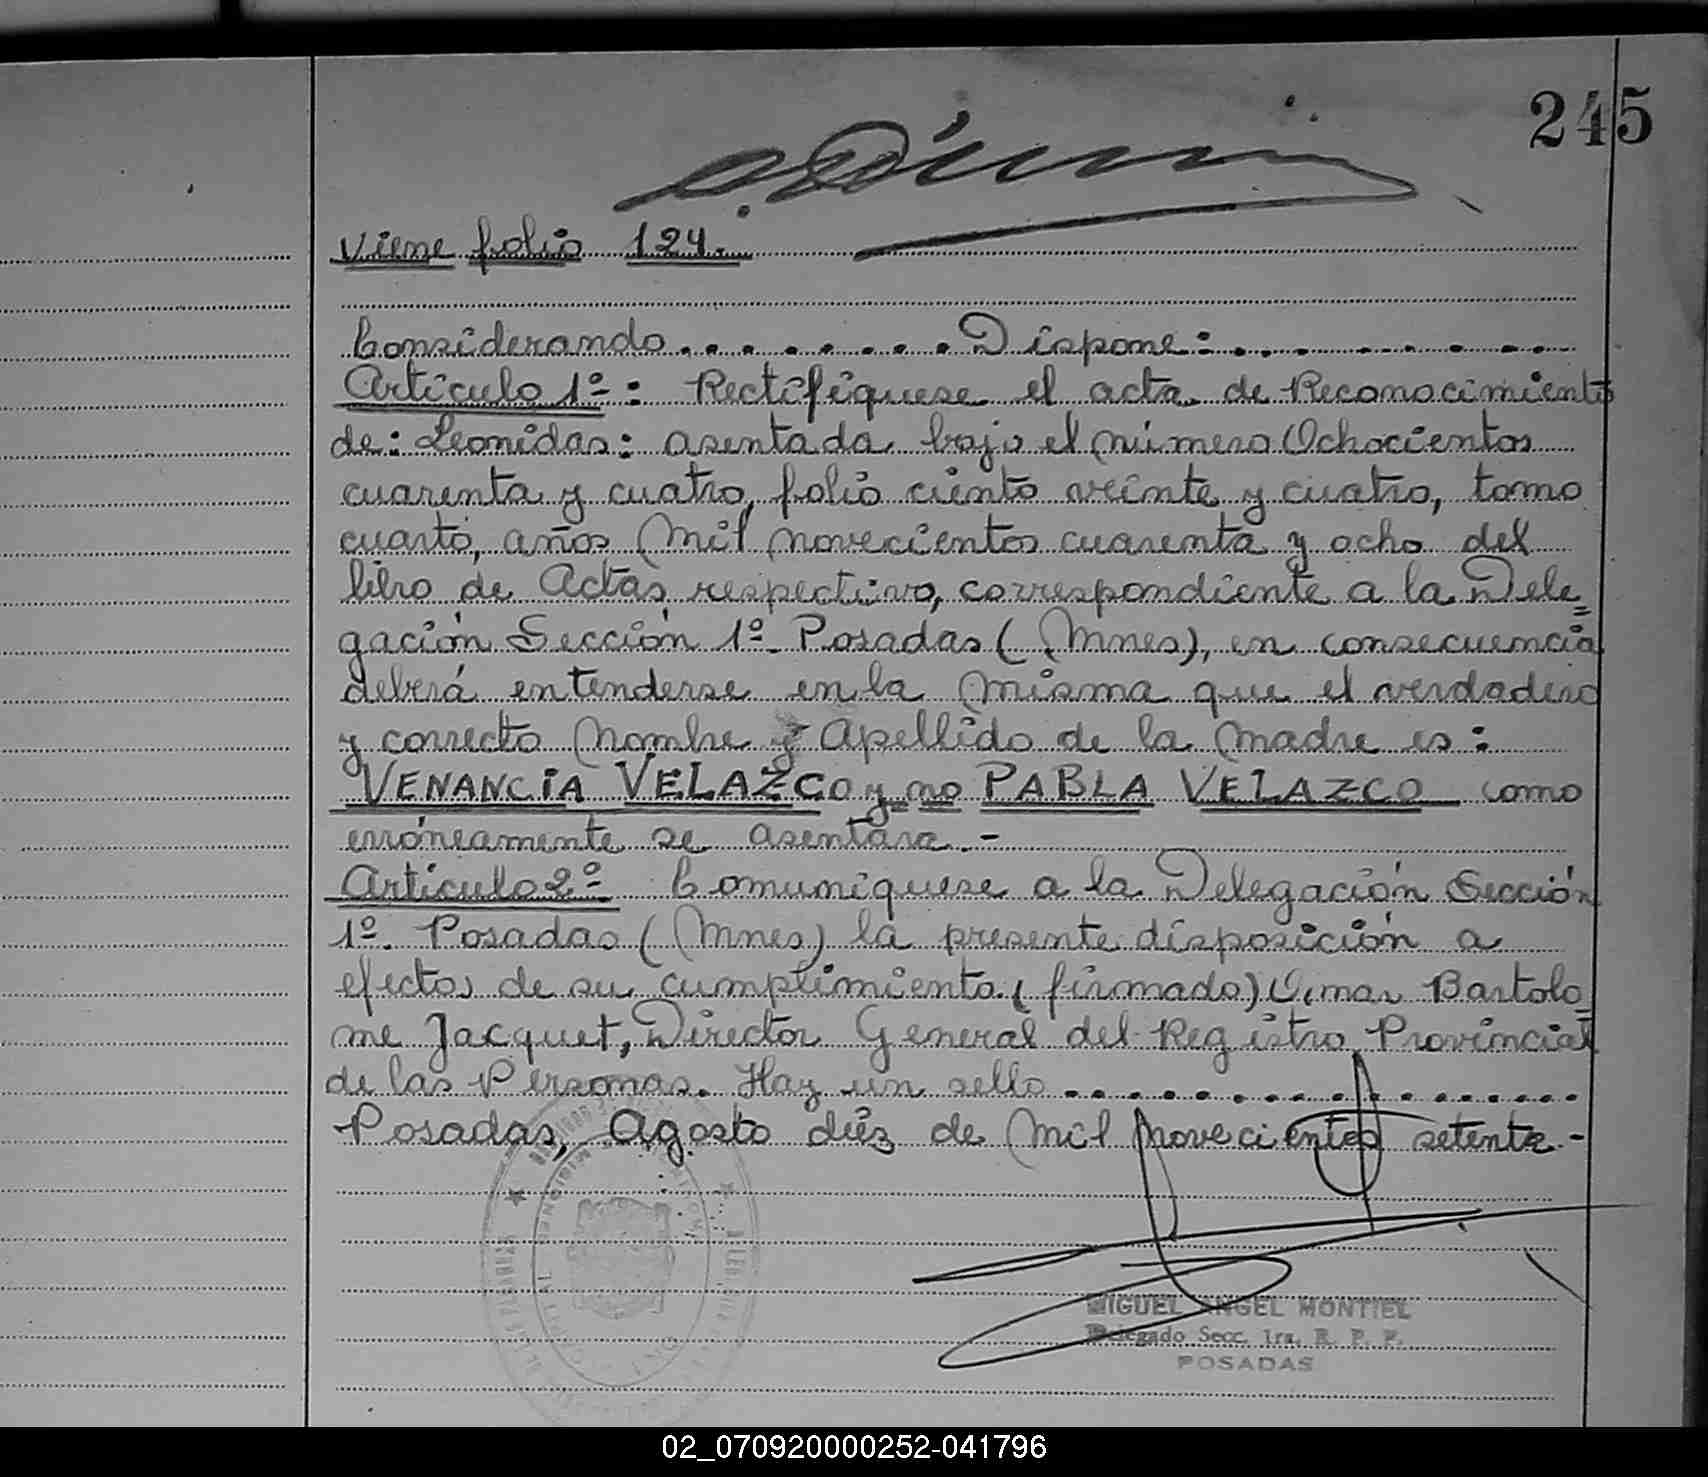 245
Viene folio 124.
Considerando . . . . . . . . . Dispone: . . . . . . . . . . .
Artículo 1º: Rectifíquese el acta de Reconocimiento
de: Leonidas: asentada bajo el número Ochocientos
cuarenta y cuatro, folio ciento veinte y cuatro, tomo
cuarto, años Mil novecientos cuarenta y ocho del
libro de Actas respectivo, correspondiente a la Dele=
gación Sección 1º. Posadas (Mnes), en consecuencia
deberá entenderse en la misma que el verdadero
y correcto Nombre y Apellido de la madre es:
VENANCIA VELAZCO y no PABLA VELAZCO como
erróneamente se asentara.-
Artículo 2º Comuníquese a la Delegación Sección
1º. Posadas (Mnes) la presente disposición a
efectos de su cumplimiento. (firmado) Omar Bartolo
me Jacquet, Director General del Registro Provincial
de las Personas. Hay un sello . . . . . . . . . . . . . . . . . .
Posadas, Agosto diéz de Mil Novecientos setenta.-
MIGUEL ANGEL MONTIEL
Delegado Secc. 1ra. R. P. P.
POSADAS
02_070920000252-041796